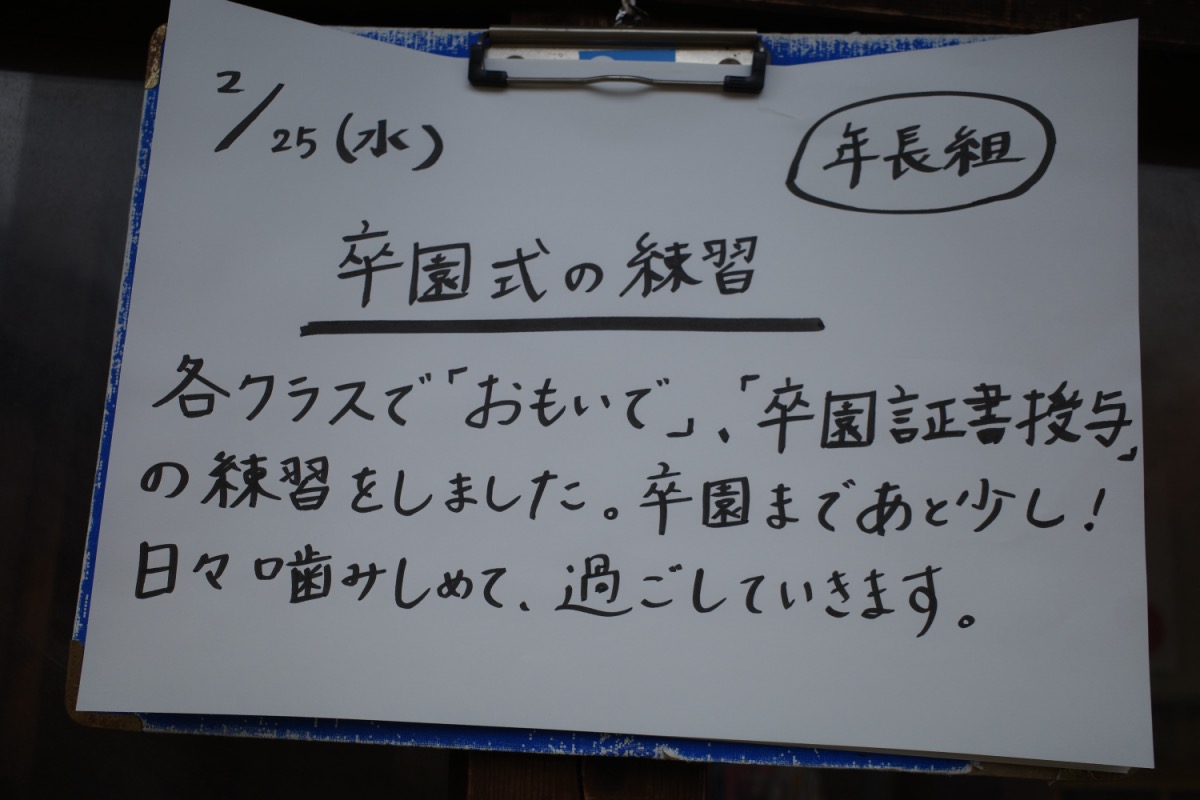 2/25(水)
年長組
卒園式の練習
各クラスで「おもいで」、「卒園証書授与」
の練習をしました。卒園まであと少し!
日々噛みしめて、過ごしていきます。